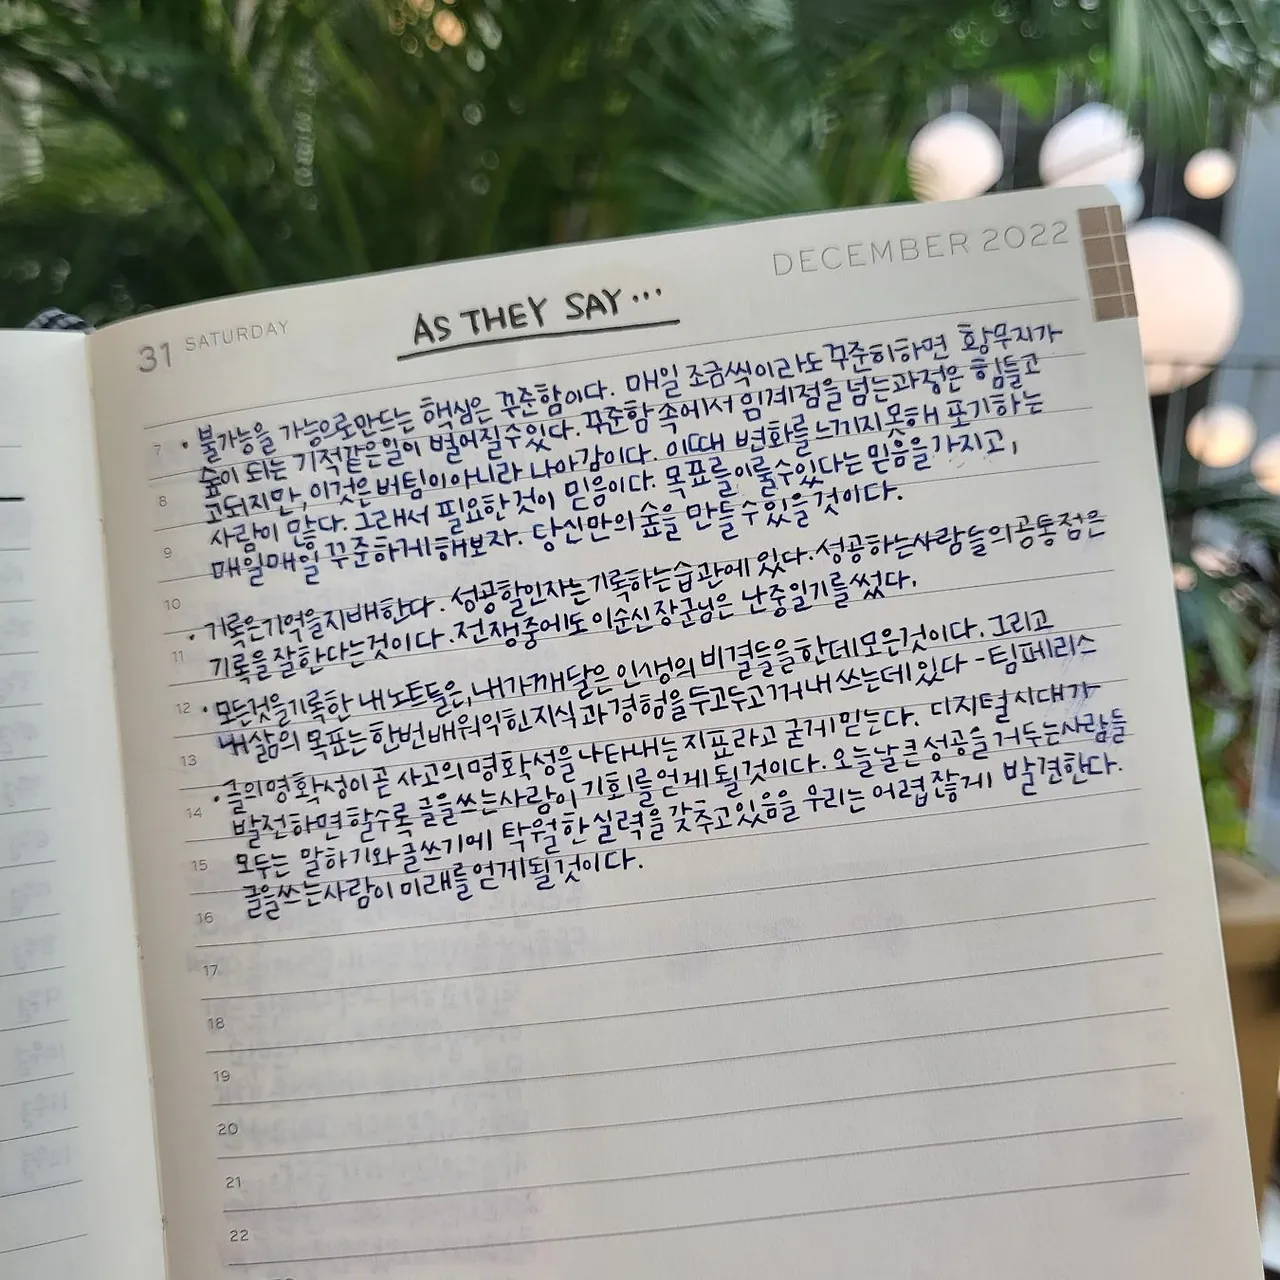 DECEMBER 2022
31 SATURDAY
AS THEY SAY...
7 · 불가능을 가능으로만드는 핵심은 꾸준함이다. 매일 조금씩이라도 꾸준히하면 황무지가
숲이 되는 기적같은일이 벌어질수있다. 꾸준함 속에서 임계점을 넘는과정은 힘들고
8 고되지만, 이것은 버팀이아니라 나아감이다. 이때 변화를느끼지못해 포기하는
사람이 많다. 그래서 필요한것이 믿음이다. 목표를이룰수있다는 믿음을가지고,
9 매일매일 꾸준하게해보자. 당신만의 숲을 만들수있을것이다.
10 · 기록은기억을지배한다. 성공할인자는기록하는습관에 있다. 성공하는사람들의공통점은
11 기록을잘한다는것이다. 전쟁중에도이순신장군님은 난중일기를썼다.
12 · 모든것을기록한 내노트들은, 내가깨달은 인생의 비결들을한데모은것이다. 그리고
13 내삶의 목표는한번배워익힌지식과경험을두고두고꺼내쓰는데있다 - 팀페리스
14 · 글의명확성이곧 사고의명확성을나타내는지표라고 굳게믿는다. 디지털시대가
발전하면할수록 글을쓰는사람이 기회를얻게될것이다. 오늘날큰성공을거두는사람들
15 모두는 말하기와글쓰기에 탁월한실력을갖추고있음을 우리는 어렵잖게 발견한다.
16 글을쓰는사람이미래를얻게될것이다.
17
18
19
20
21
22